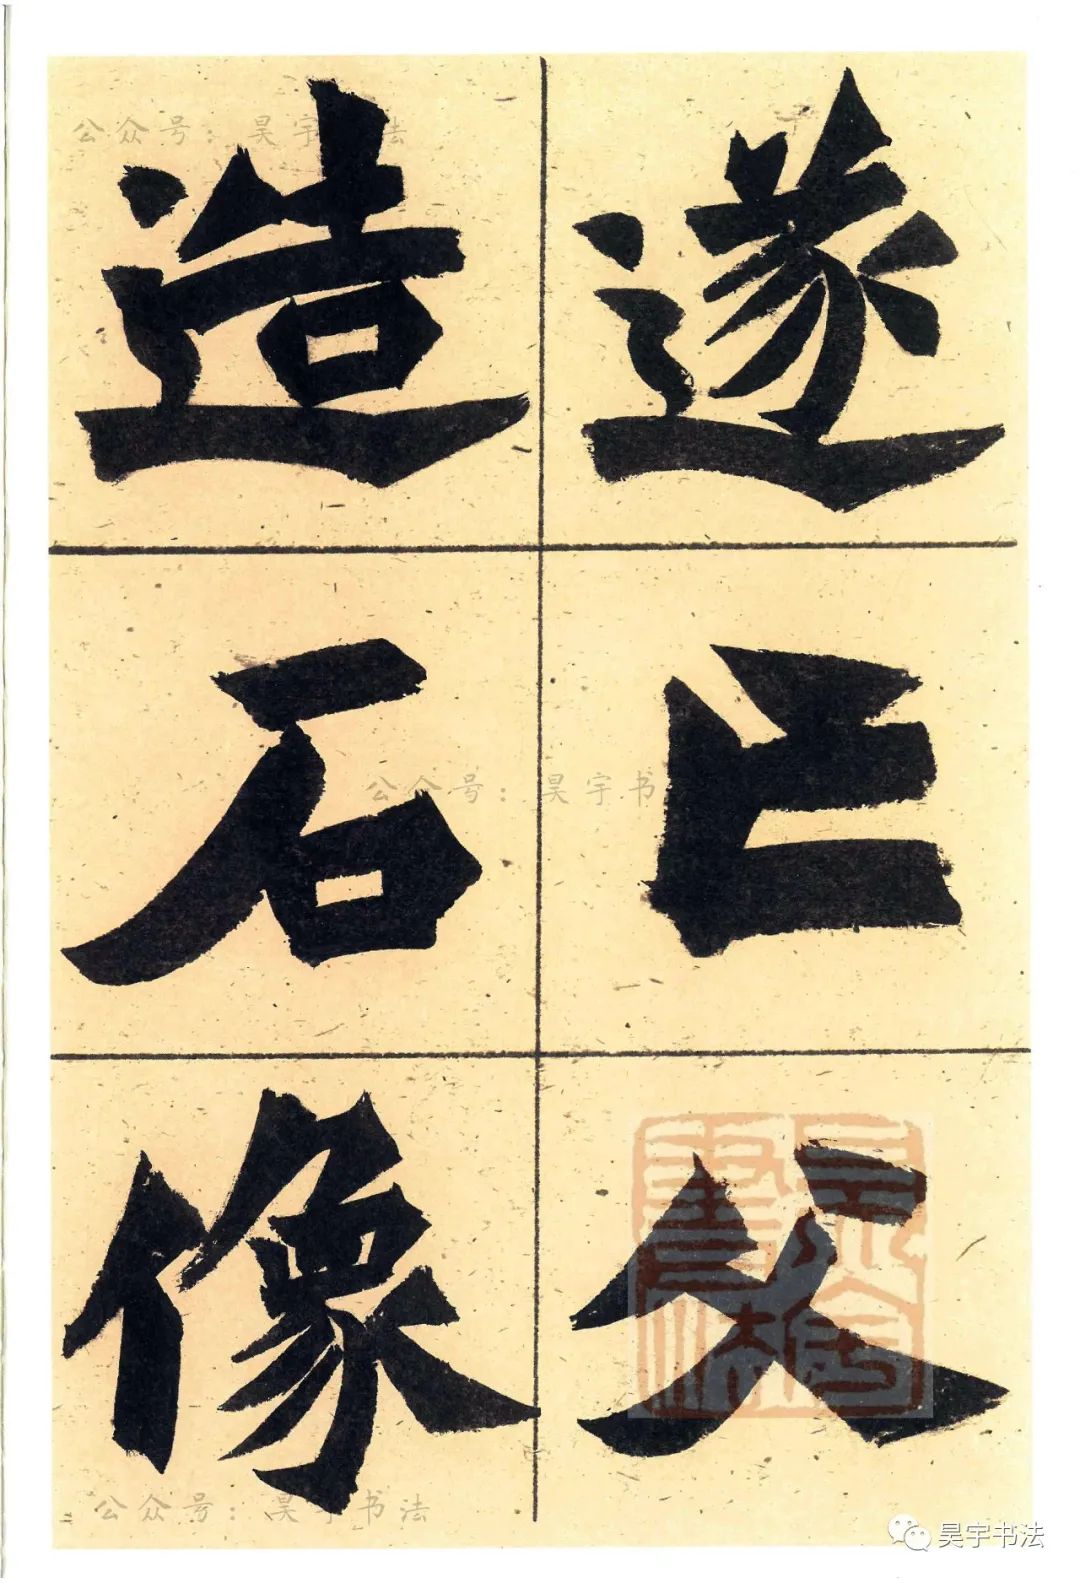 遂亡父
造石像
公众号：昊宇书法
公众号：昊宇书
公众号：昊宇书法
昊宇书法